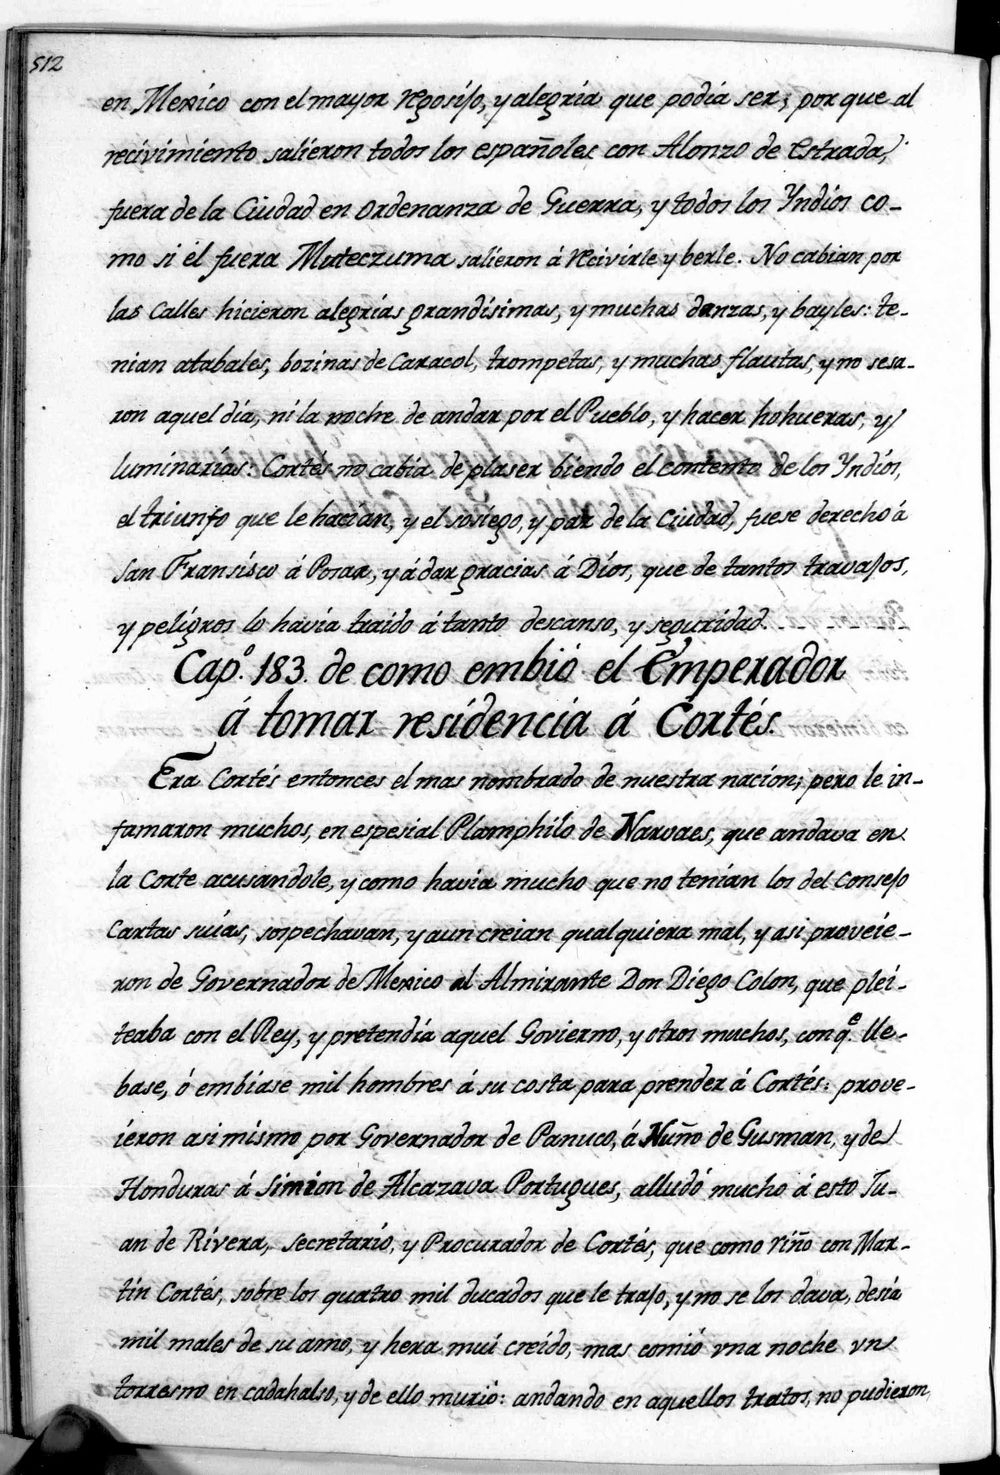 512
en Mexico con el mayor regosijo, y alegria que podia ser; por que al
recivimiento salieron todos los españoles con Alonzo de Estrada,
fuera de la Ciudad en ordenanza de Guerra, y todos los Yndios co-
mo si él fuera Muteczuma salieron á recivirle y berle. No cabian por
las Calles hicieron alegrias grandisimas, y muchas danzas, y bayles: te-
nian atabales, bozinas de Caracol, trompetas, y muchas flautas, y no sesa-
ron aquel dia, ni la noche de andar por el Pueblo, y hacer hohueras, y
luminarias: Cortés no cabia de plaser biendo el contento de los Yndios,
el triunfo que le hacian, y el sosiego, y paz de la Ciudad, fuese derecho á
San Fransisco á Posar, y á dar gracias á Dios, que de tantos travajos,
y peligros lo havia traido á tanto descanso, y seguridad.
Capº. 183. de como embió el Emperador
á tomar residencia á Cortés.
Era Cortés entonces el mas nombrado de nuestra nacion; pero le in-
famaron muchos, en espesial Plamphilo de Narvaes, que andava en
la Corte acusandole, y como havia mucho que no tenian los del Consejo
Cartas suias, sospechavan, y aun creian qualquiera mal, y asi proveie-
ron de Governador de Mexico al Almirante Don Diego Colon, que plei-
teaba con el Rey, y pretendia aquel Govierno, y otros muchos, con qe. lle-
base, ó embiase mil hombres á su costa para prender á Cortés: prove-
ieron asimismo por Governador de Panuco, á Nuño de Gusman, y de
Honduras á Simion de Alcazava Portugues, alludó mucho á esto Ju-
an de Rivera, secretario, y Procurador de Cortés, que como riño con Mar-
tin Cortés, sobre los quatro mil ducados que le trajo, y no se los dava, desia
mil males de su amo, y hera mui creido, mas comió vna noche vn
torresno en cadahalso, y de ello murió: andando en aquellos tratos, no pudieron